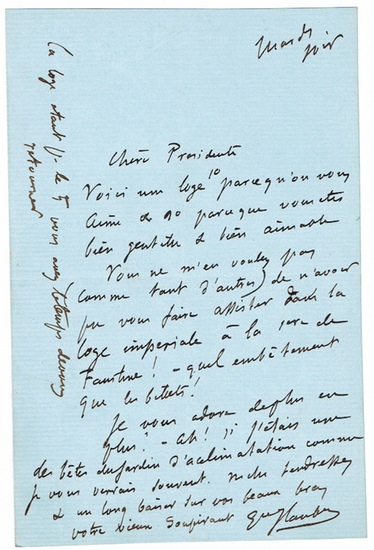 Mardi
soir
Chère Présidente
Voici une loge 1o parce qu'on vous
aime & 2o parce que vous êtes
bien gentille & bien aimable
Vous ne m'en voulez pas
(comme tant d'autres) de n'avoir
pu vous faire assister dans la
loge impériale à la 1ere de
Faustine! - quel embêtement
que les billets!
Je vous adore de plus en
plus! - Ah! si j'étais une
des bêtes du jardin d'acclimatation comme
je vous verrais souvent. mille tendresses
& un long baiser sur vos beaux bras
votre vieux soupirant Gve Flaubert
la loge étant p. le 5 vous avez le temps de me
retourner